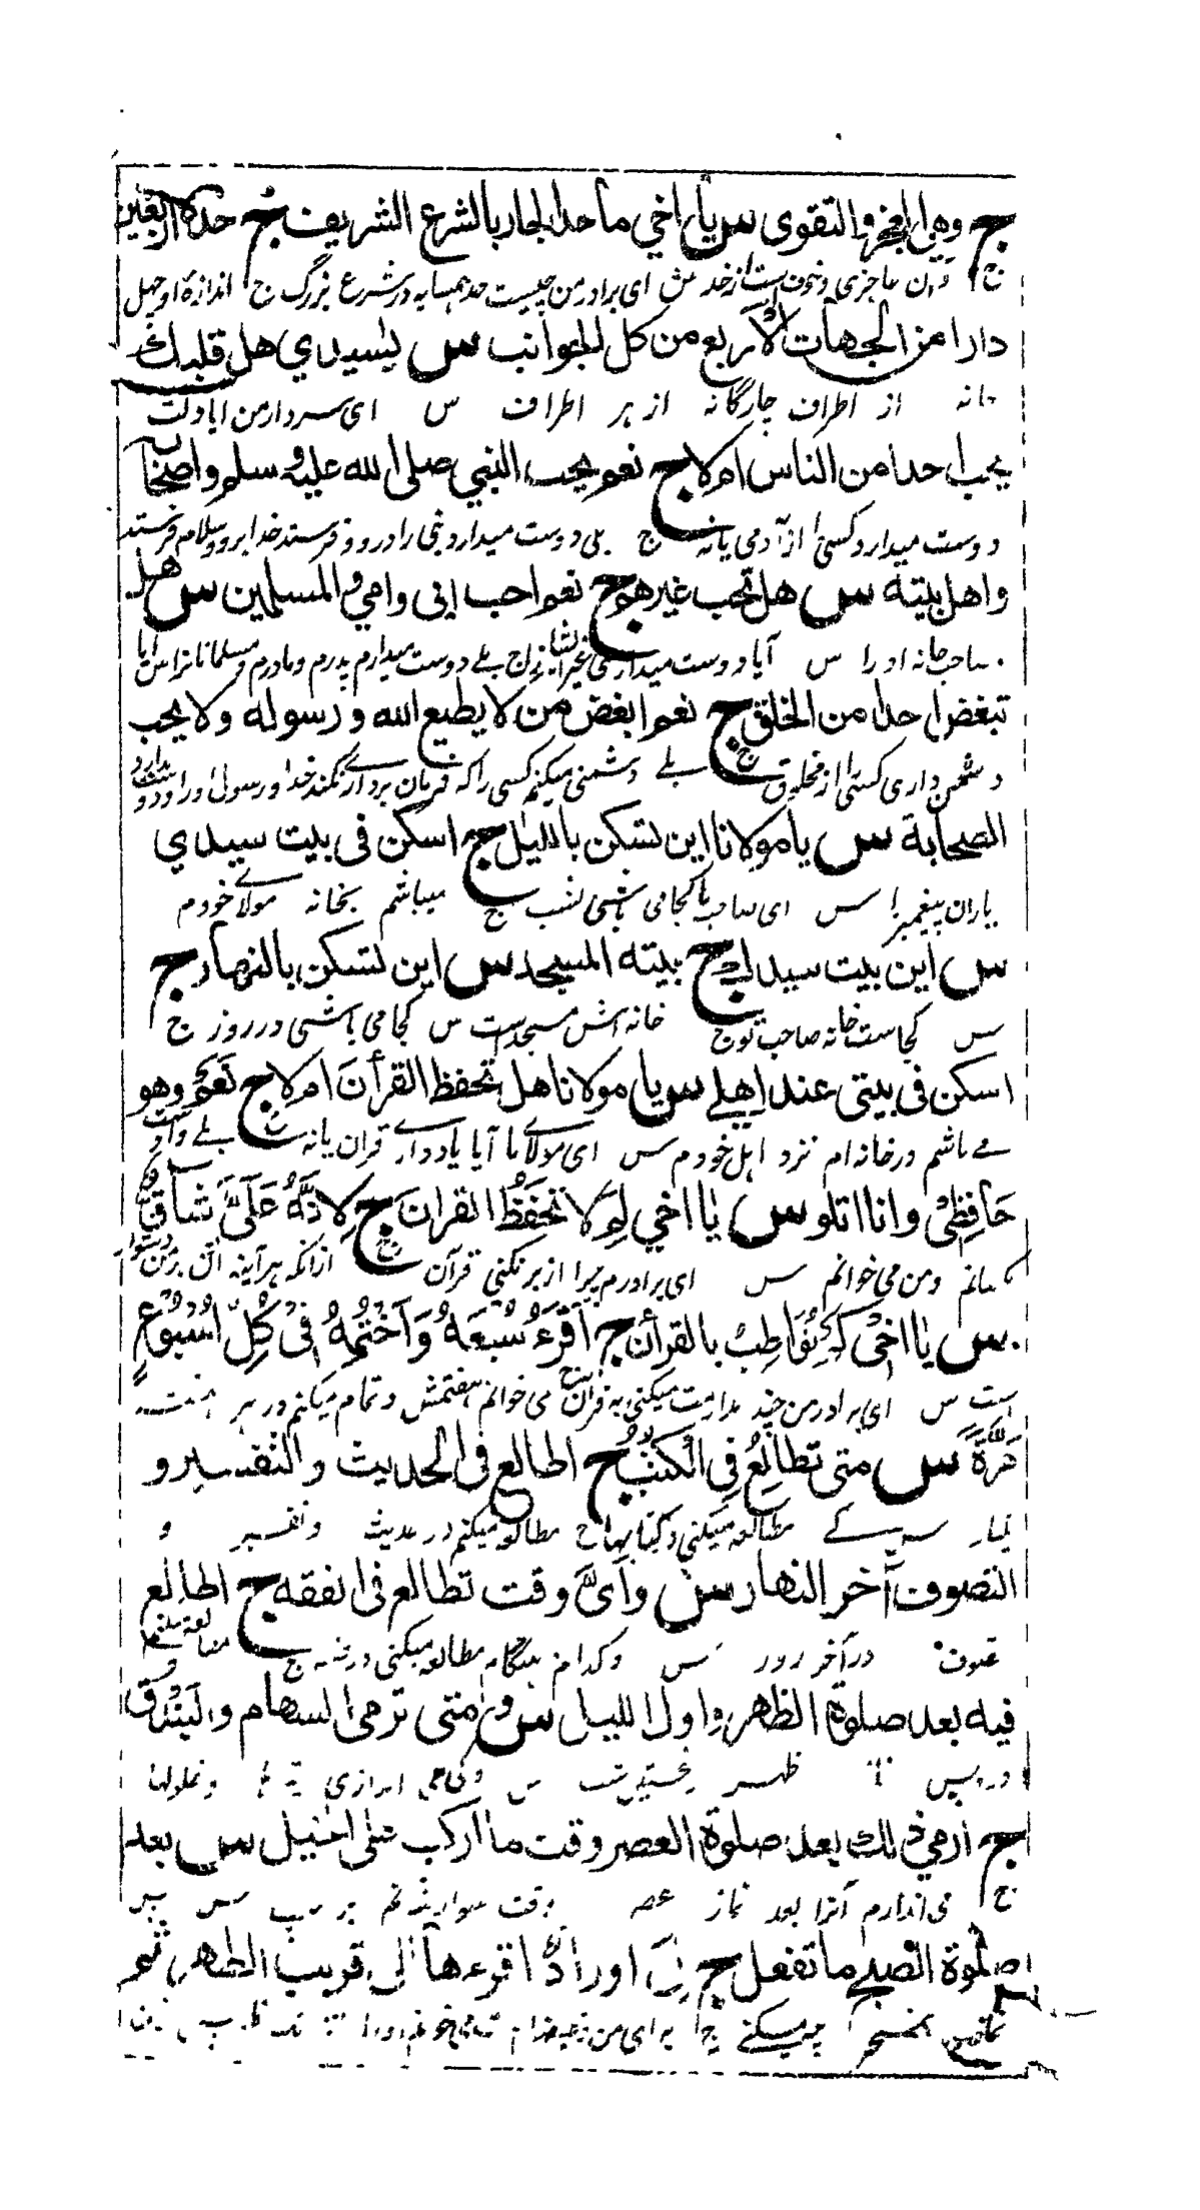 ج وهي العجز والتقوى س يا اخي ما حد الجار بالشرع الشريف ج حده اربعين
ج وآن عاجزی وخوف است از خدا س ای برادر من چیست حد همسایه در شرع بزرگ ج اندازهٔ او چهل
دارا من الجهات الاربع من كل الجوانب س يا سيدي هل قلبك
خانه از اطراف چارگانه از هر اطراف س ای سردار من ایا دلت
يحب احدا من الناس ام لا ج نعم يحب النبي صلى الله عليه وسلم واصحابه
دوست میدارد کسی از آدمی یا نه ج بلی دوست میدارد نبی را درود فرستد خدا برو وسلام فرستد
واهل بيته س هل تحب غيرهم ج نعم احب ابى وامي والمسلمين س هل
صاحب خانه او را س آیا دوست میداری غیر ایشانرا ج بلے دوست میدارم پدرم ومادرم ومسلمانانرا س آیا
تبغض احدا من الخلق ج نعم ابغض من لا يطيع الله ورسوله ولا يحب
دشمن داری کسی از مخلوق ج بلے دشمنی میکنم کسی را که فرمان برداری نکند خدا ورسول او را ودوست ندارد
الصحابة س يا مولانا اين تسكن بالليل ج اسكن فى بيت سيدي
یاران پیغمبر را س ای صاحب ما کجا می باشی بشب ج میباشم بخانه مولاے خودم
س اين بيت سيدك ج بيته المسجد س اين تسكن بالنهار ج
س کجاست خانه صاحب تو ج خانه اش مسجد است س کجا می باشی در روز ج
اسكن فى بيتى عند اهلے س يا مولانا هل تحفظ القرأن ام لا ج نعم وهو
مے باشم در خانه ام نزد اهل خودم س ای مولاے ما آیا یاد داری قران یا نه ج بلے وآن
حَافِظِيْ وانا اتلو س يا اخي لِمَ لا تحفَظُ القران ج لِاَنَّهُ عَلَىَّ شَاقٌّ
ومن می خوانم س ای برادرم چرا از بر نکنی قرآن ج ازانکه هرآینه آن بر من دشوار
س يا اخي كم تُوَاظِبُ بالقرأن ج اَقْرَءُ سُبْعَهُ وَاَخْتِمُهُ فِىْ كُلِّ اُسْبُوْعٍ
است س ای برادر من چند مداومت میکنی به قران ج می خوانم هفتمش وتمام میکنم در هر هفته
مَرَّةً س متى تطالِعُ فِي الْكُتُبِ ج اطالع فى الحديث والتفسير و
یکبار س کے مطالعه میکنی در کتابها ج مطالعه میکنم در حدیث وتفسیر و
التصوف آخر النهار س وَاَىَّ وقت تطالع فى الفقه ج اطالع
تصوف در آخر روز س وکدام هنگام مطالعه میکنی در فقه ج مطالعه میکنم
فيه بعد صلوة الظهر واول الليل س ومتى ترمى السهام والبُنْدُق
در پس نماز ظهر ونخستین شب س وکے می اندازی تیرها وغلولها
ج ارمي ذلك بعد صلوة العصر وقت ما اركب على الخيل س بعد
ج می اندازم آنرا بعد نماز عصر وقت سوار شدنم بر اسپ س پس
صلوة الصبح ما تفعل ج لِىْ اورادٌ اقرءها الى قريب الظهر ثم
نماز صبح چه میکنی ج برای من